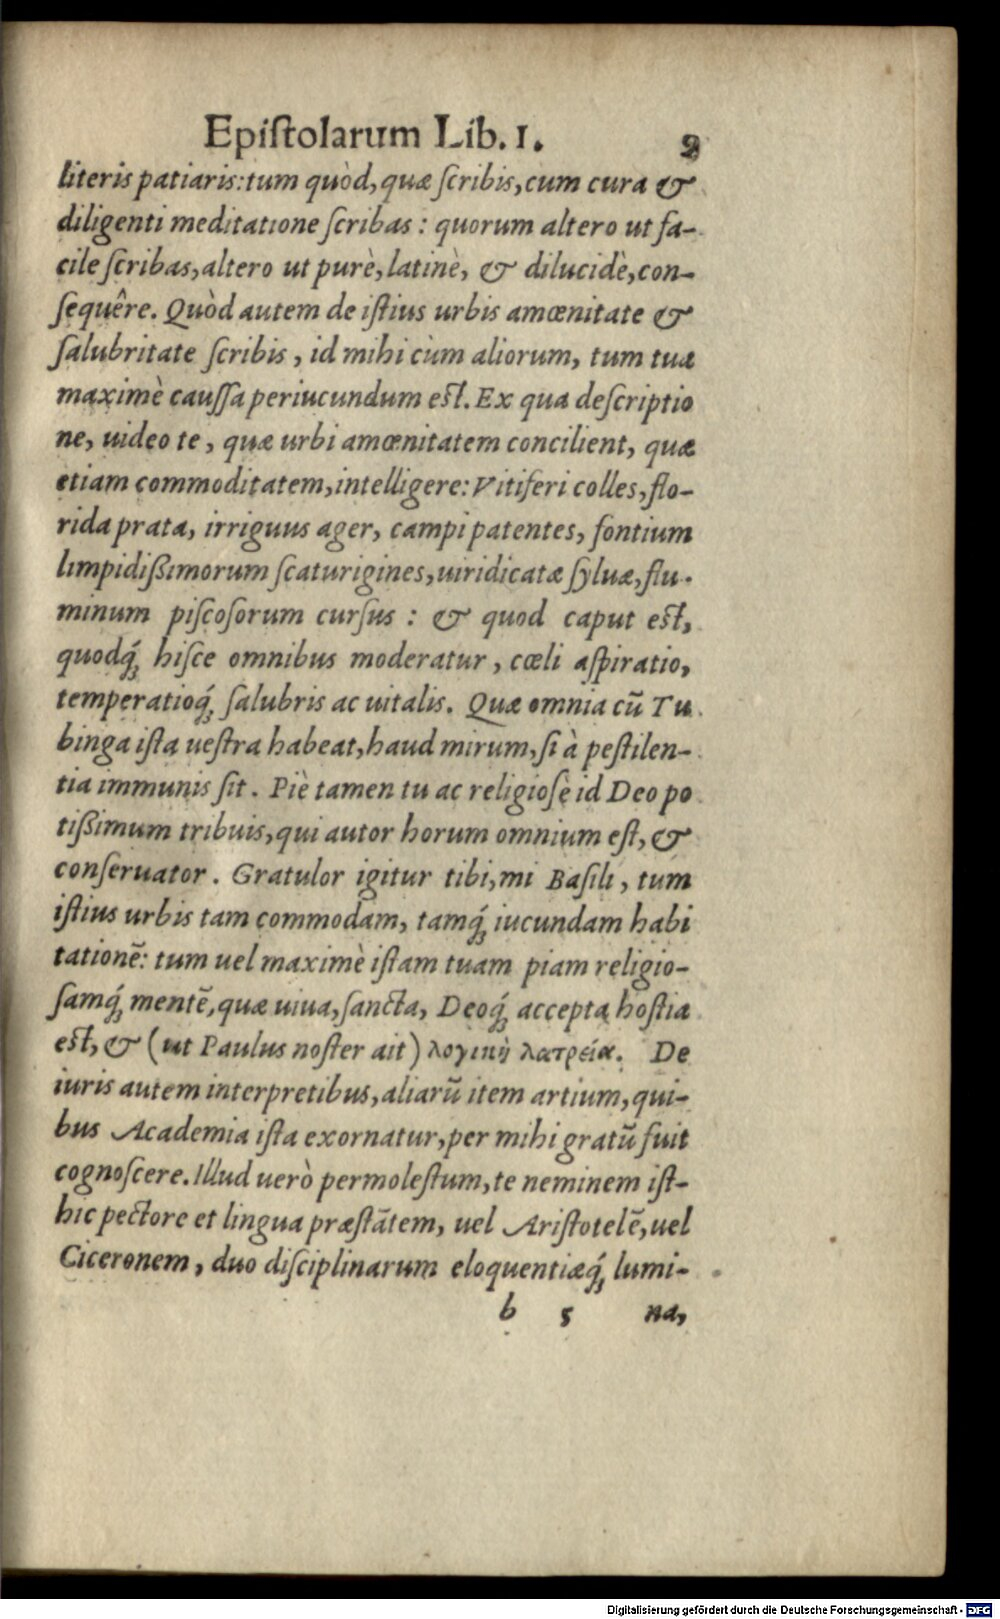 Epiſtolarum Lib. I. 2
literis patiaris: tum quòd, quæ ſcribis, cum cura &
diligenti meditatione ſcribas : quorum altero ut fa-
cile ſcribas, altero ut purè, latinè, & dilucidè, con-
ſequêre. Quòd autem de iſtius urbis amœnitate &
ſalubritate ſcribis, id mihi cùm aliorum, tum tua
maximè cauſſa periucundum eſt. Ex qua deſcriptio
ne, uideo te, quæ urbi amœnitatem concilient, quæ
etiam commoditatem, intelligere: Vitiferi colles, flo-
rida prata, irriguus ager, campi patentes, fontium
limpidißimorum ſcaturigines, uiridicatæ ſyluæ, flu-
minum piſcoſorum curſus : & quod caput eſt,
quodq́; hiſce omnibus moderatur, cœli aſpiratio,
temperatioq́; ſalubris ac uitalis. Quæ omnia cũ Tu
binga iſta ueſtra habeat, haud mirum, ſi à peſtilen-
tia immunis ſit. Piè tamen tu ac religioſè id Deo po
tißimum tribuis, qui autor horum omnium eſt, &
conſeruator. Gratulor igitur tibi, mi Baſili, tum
iſtius urbis tam commodam, tamq́; iucundam habi
tationẽ: tum uel maximè iſtam tuam piam religio-
ſamq́; mentẽ, quæ uiua, ſancta, Deoq́; accepta hoſtia
eſt, & (ut Paulus noſter ait) λογικὴ λατρεία. De
iuris autem interpretibus, aliarũ item artium, qui-
bus Academia iſta exornatur, per mihi gratũ fuit
cognoſcere. Illud uerò permoleſtum, te neminem iſt-
hic pectore et lingua præſtãtem, uel Ariſtotelẽ, uel
Ciceronem, duo diſciplinarum eloquentiæq́; lumi-
b 5 na,
Digitalisierung gefördert durch die Deutsche Forschungsgemeinschaft - DFG